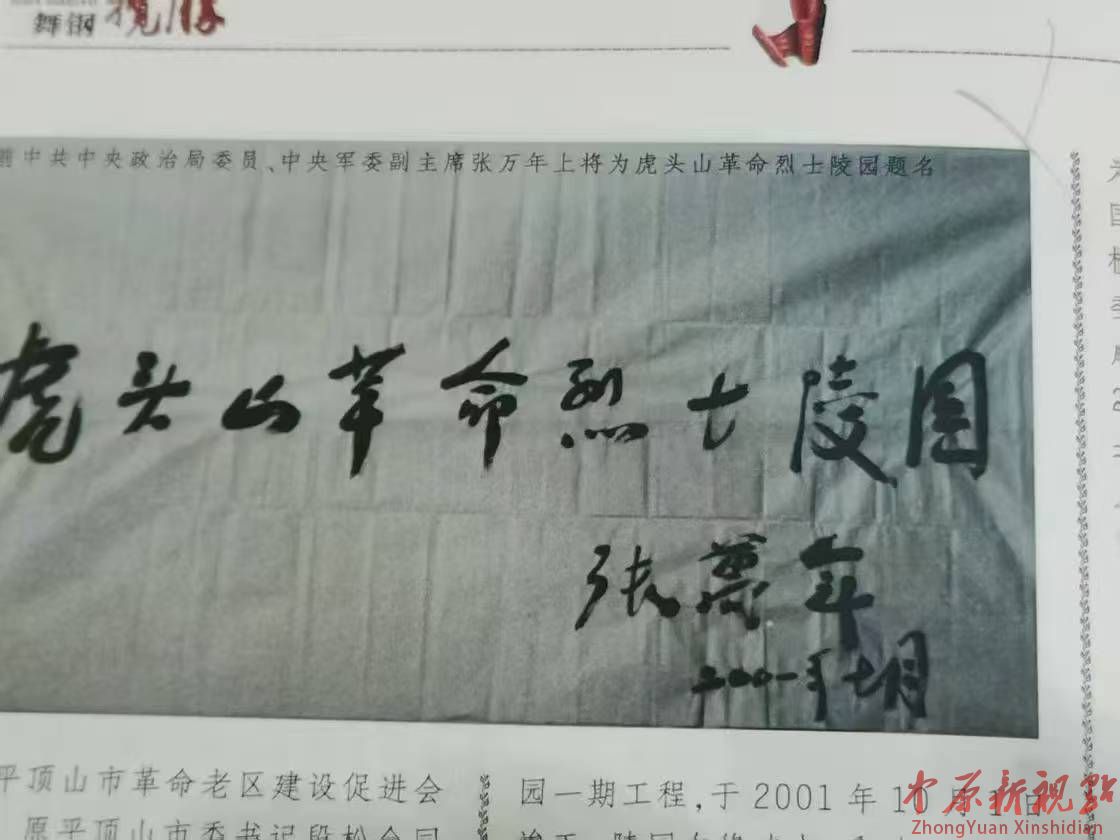 舞钢 揽胜
前中共中央政治局委员、中央军委副主席张万年上将为虎头山革命烈士陵园题名
虎头山革命烈士陵园
张萬年
二00一年七月
平顶山市革命老区建设促进会
原平顶山市委书记段松会同
园一期工程,于2001年10月1日
中原新视点
ZhongYuan Xinshidian